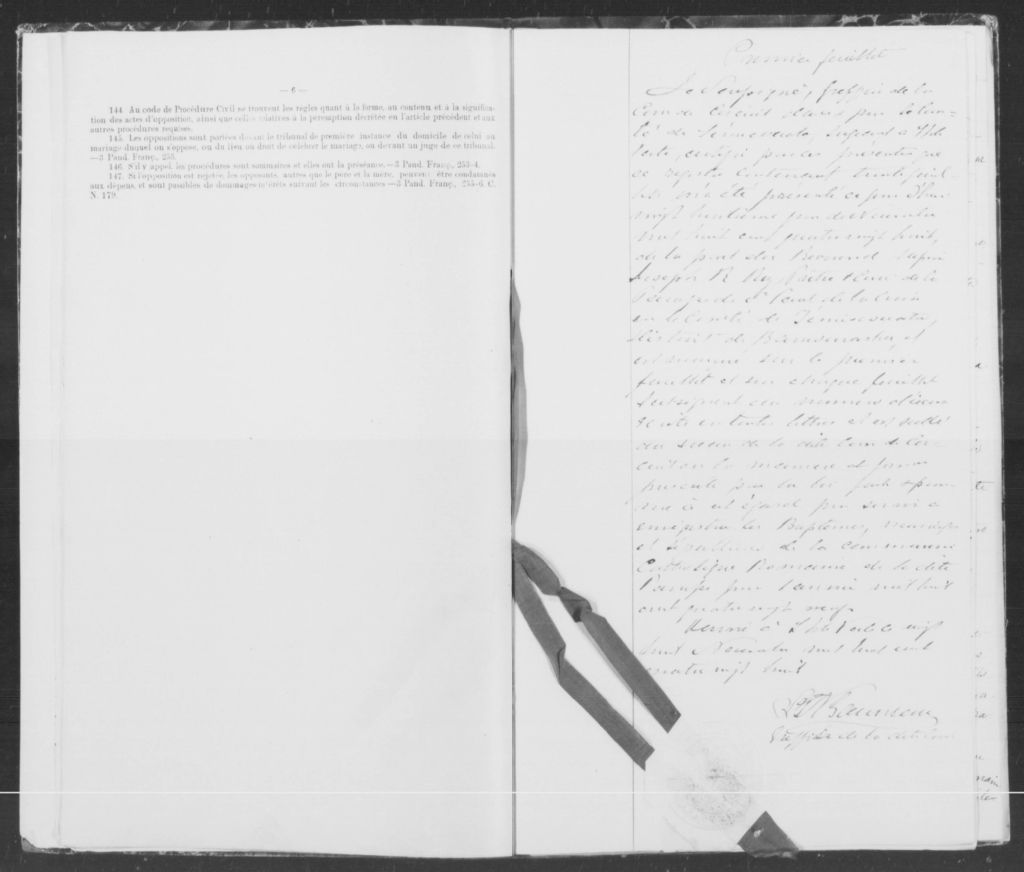 — 6 —
144. Au code de Procédure Civil se trouvent les règles quant à la forme, au contenu et à la significa-
tion des actes d'opposition, ainsi que celles relatives à la péremption décrétée en l'article précédent et aux
autres procédures requises.
145. Les oppositions sont portées devant le tribunal de première instance du domicile de celui au
mariage duquel on s'oppose, ou du lieu où doit se célébrer le mariage, ou devant un juge de ce tribunal.
—3 Pand. Franç. 253.
146. S'il y appel, les procédures sont sommaires et elles ont la préséance.—3 Pand. Franç. 253-4.
147. Si l'opposition est rejetée, les opposants, autres que le père et la mère, peuvent être condamnés
aux dépens, et sont passibles de dommages intérêts suivant les circonstances—3 Pand. Franç., 255-6. C.
N. 179.
Premier feuillet
Je Soussigné, greffier de la
Cour de Circuit dans et pour le Com-
té de Témiscouata
certifie par les présentes que
ce registre contenant trente feuil-
lets m'a été présenté ce jour d'hui
vingt huitième jour de Novembre
mil huit cent quatre vingt huit,
de la part du Révérend
Joseph R Roy Prêtre Curé de la
Paroisse de St Paul de la Croix
en le Comté de Témiscouata,
District de Kamouraska, et
est numéroté sur le premier
feuillet et sur chaque feuillet
subséquent du numéro d'icelui
écrit en toutes lettres et est scellé
du sceau de la dite Cour de Cir-
cuit en la manière et forme
prescrite par la loi faite et pour-
vue à cet égard pour servir à
enregistrer les Baptêmes, mariages
et Sépultures de la communion
Catholique Romaine de la dite
Paroisse pour l'année mil huit
cent quatre vingt neuf.
vingt
huit Novembre mil huit cent
quatre vingt huit
Greffier de la dite Cour